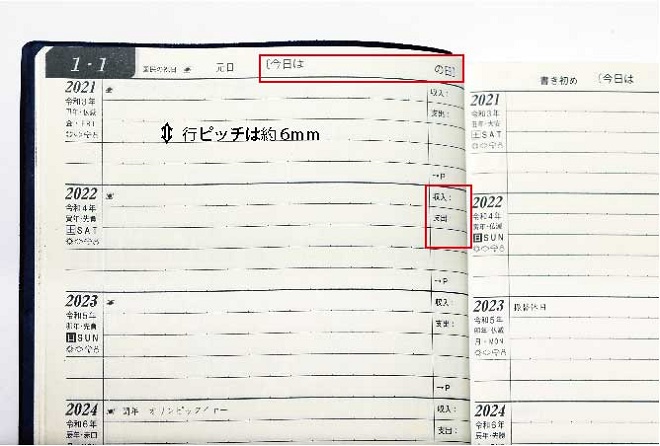 1・1 国民の祝日 元日 〔今日は の日〕
2021
令和3年
丑年・仏滅
金・FRI
収入:
支出:
行ピッチは約6mm
→P
2022
令和4年
寅年・先負
土SAT
収入:
支出:
→P
2023
令和5年
卯年・先負
日SUN
収入:
支出:
→P
2024 閏年 オリンピックイヤー
令和6年
辰年・赤口
収入:
支出:
書き初め 〔今日は
2021
令和3年
丑年・大安
土SAT
2022
令和4年
寅年・仏滅
日SUN
2023 振替休日
令和5年
卯年・仏滅
月・MON
2024
令和6年
辰年・先勝